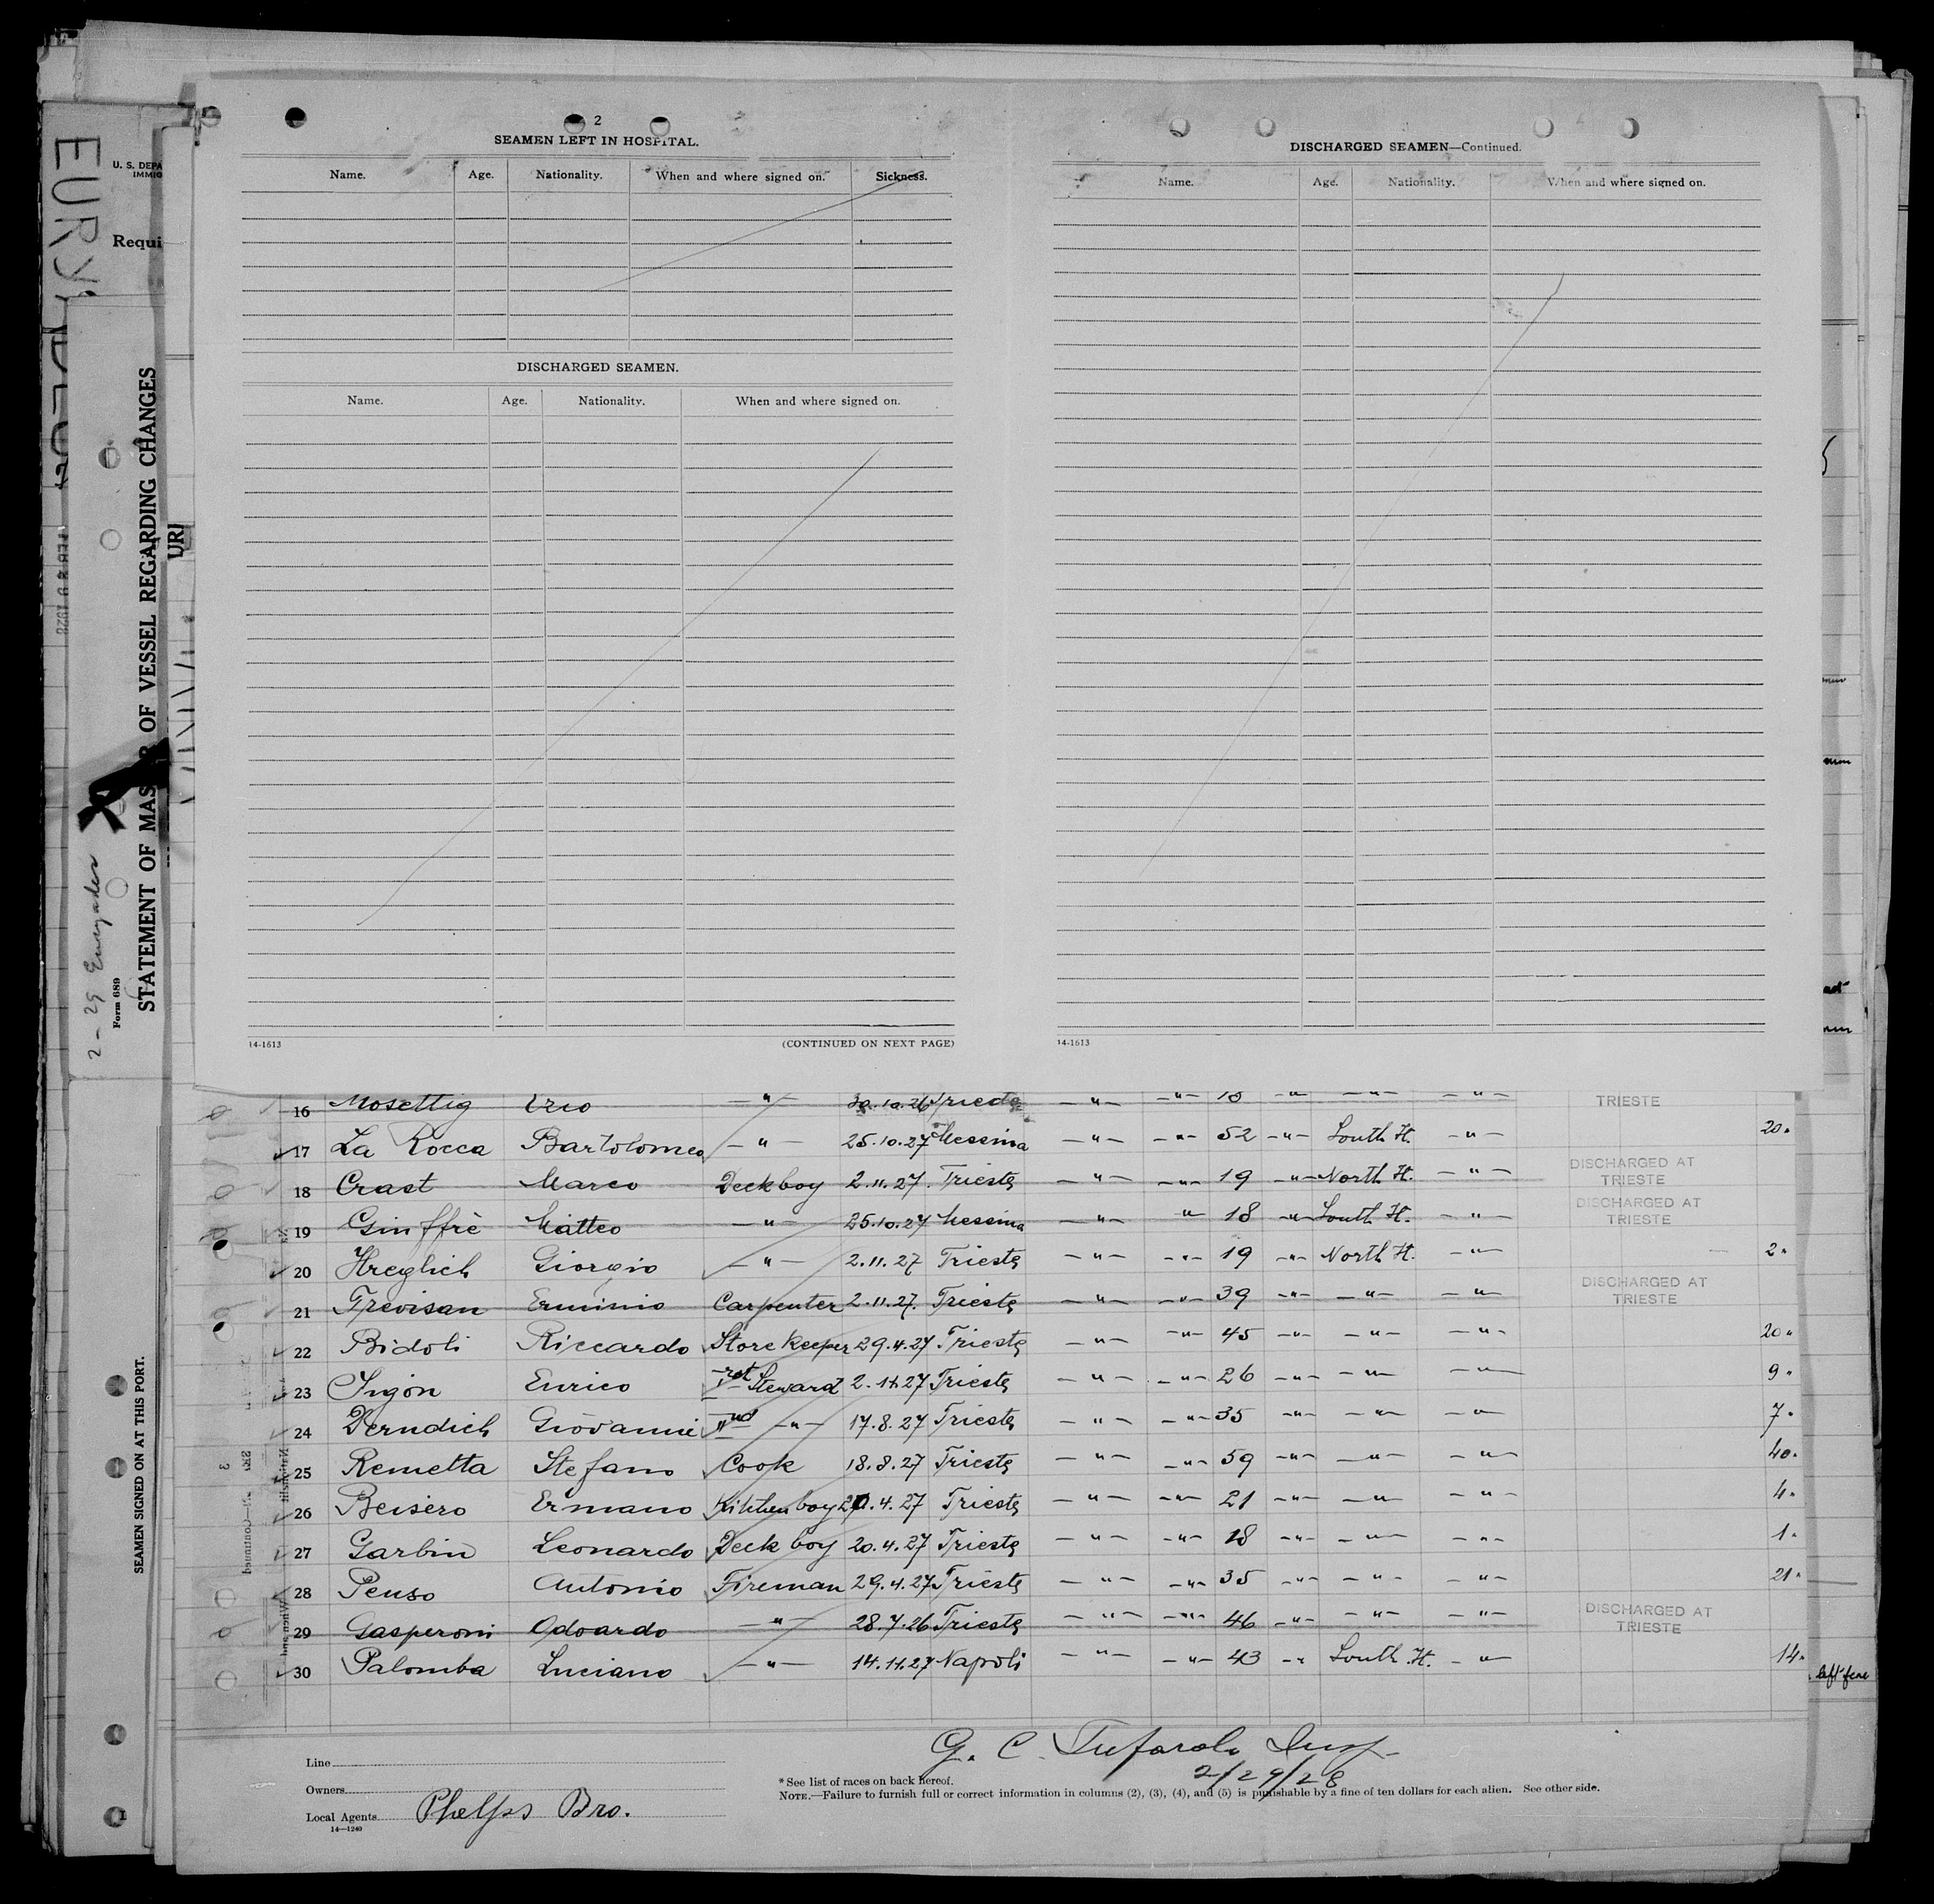 2
SEAMEN LEFT IN HOSPITAL.
Name. Age. Nationality. When and where signed on. Sickness.
DISCHARGED SEAMEN.
Name. Age. Nationality. When and where signed on.
14-1613 (CONTINUED ON NEXT PAGE)
DISCHARGED SEAMEN—Continued.
Name. Age. Nationality. When and where signed on.
14-1613
U. S. DEPA
IMMIG
Requi
FEB 29 1928
STATEMENT OF MAS R OF VESSEL REGARDING CHANGES
Form 689
SEAMEN SIGNED ON AT THIS PORT.
16 Mosettig —"— 30.10.26 Trieste —"— —"— —"— —"— —"— TRIESTE
17 La Rocca Bartolomeo —"— 25.10.27 Messina —"— —"— 52 —"— South It. —"— 20"
18 Crast Marco Deckboy 2.11.27. Trieste —"— —"— 19 —"— North It. —"— DISCHARGED AT TRIESTE
19 Giuffrè Matteo —"— 25.10.27 Messina —"— " 18 —"— South It. —"— DISCHARGED AT TRIESTE
20 Hreglich Giorgio —"— 2.11.27 Trieste —"— —"— 19 —"— North It. —"— 2"
21 Trevisan Erminio Carpenter 2.11.27. Trieste —"— —"— 39 —"— —"— —"— DISCHARGED AT TRIESTE
22 Bidoli Riccardo Storekeeper 29.4.27 Trieste —"— —"— 45 —"— —"— —"— 20"
23 Enrico Steward 2.11.27 Trieste —"— —"— 26 —"— —"— —"— 9"
24 Derndich Giovanni IInd —"— 17.8.27 Trieste —"— —"— 35 —"— —"— —"— 7"
25 Remetta Stefano Cook 18.8.27 Trieste —"— —"— 59 —"— —"— —"— 40"
26 Beisero Ermano Kitchenboy 4.27 Trieste —"— —"— 21 —"— —"— —"— 4"
27 Garbin Leonardo Deck boy 20.4.27 Trieste —"— —"— 18 —"— —"— —"— 1"
28 Penso Antonio Fireman 29.4.27 Trieste —"— —"— 35 —"— —"— —"— 21"
29 Gasperoni Odoardo —"— 28.7.26 Trieste —"— —"— 46 —"— —"— —"— DISCHARGED AT TRIESTE
30 Palomba Luciano —"— 14.11.27 Napoli —"— —"— 43 —"— South It. —"— 14"
G. C. Insp.
2/29/28
Line
Owners
Local Agents Phelps Bro.
14—1240
* See list of races on back hereof.
NOTE.—Failure to furnish full or correct information in columns (2), (3), (4), and (5) is punishable by a fine of ten dollars for each alien. See other side.